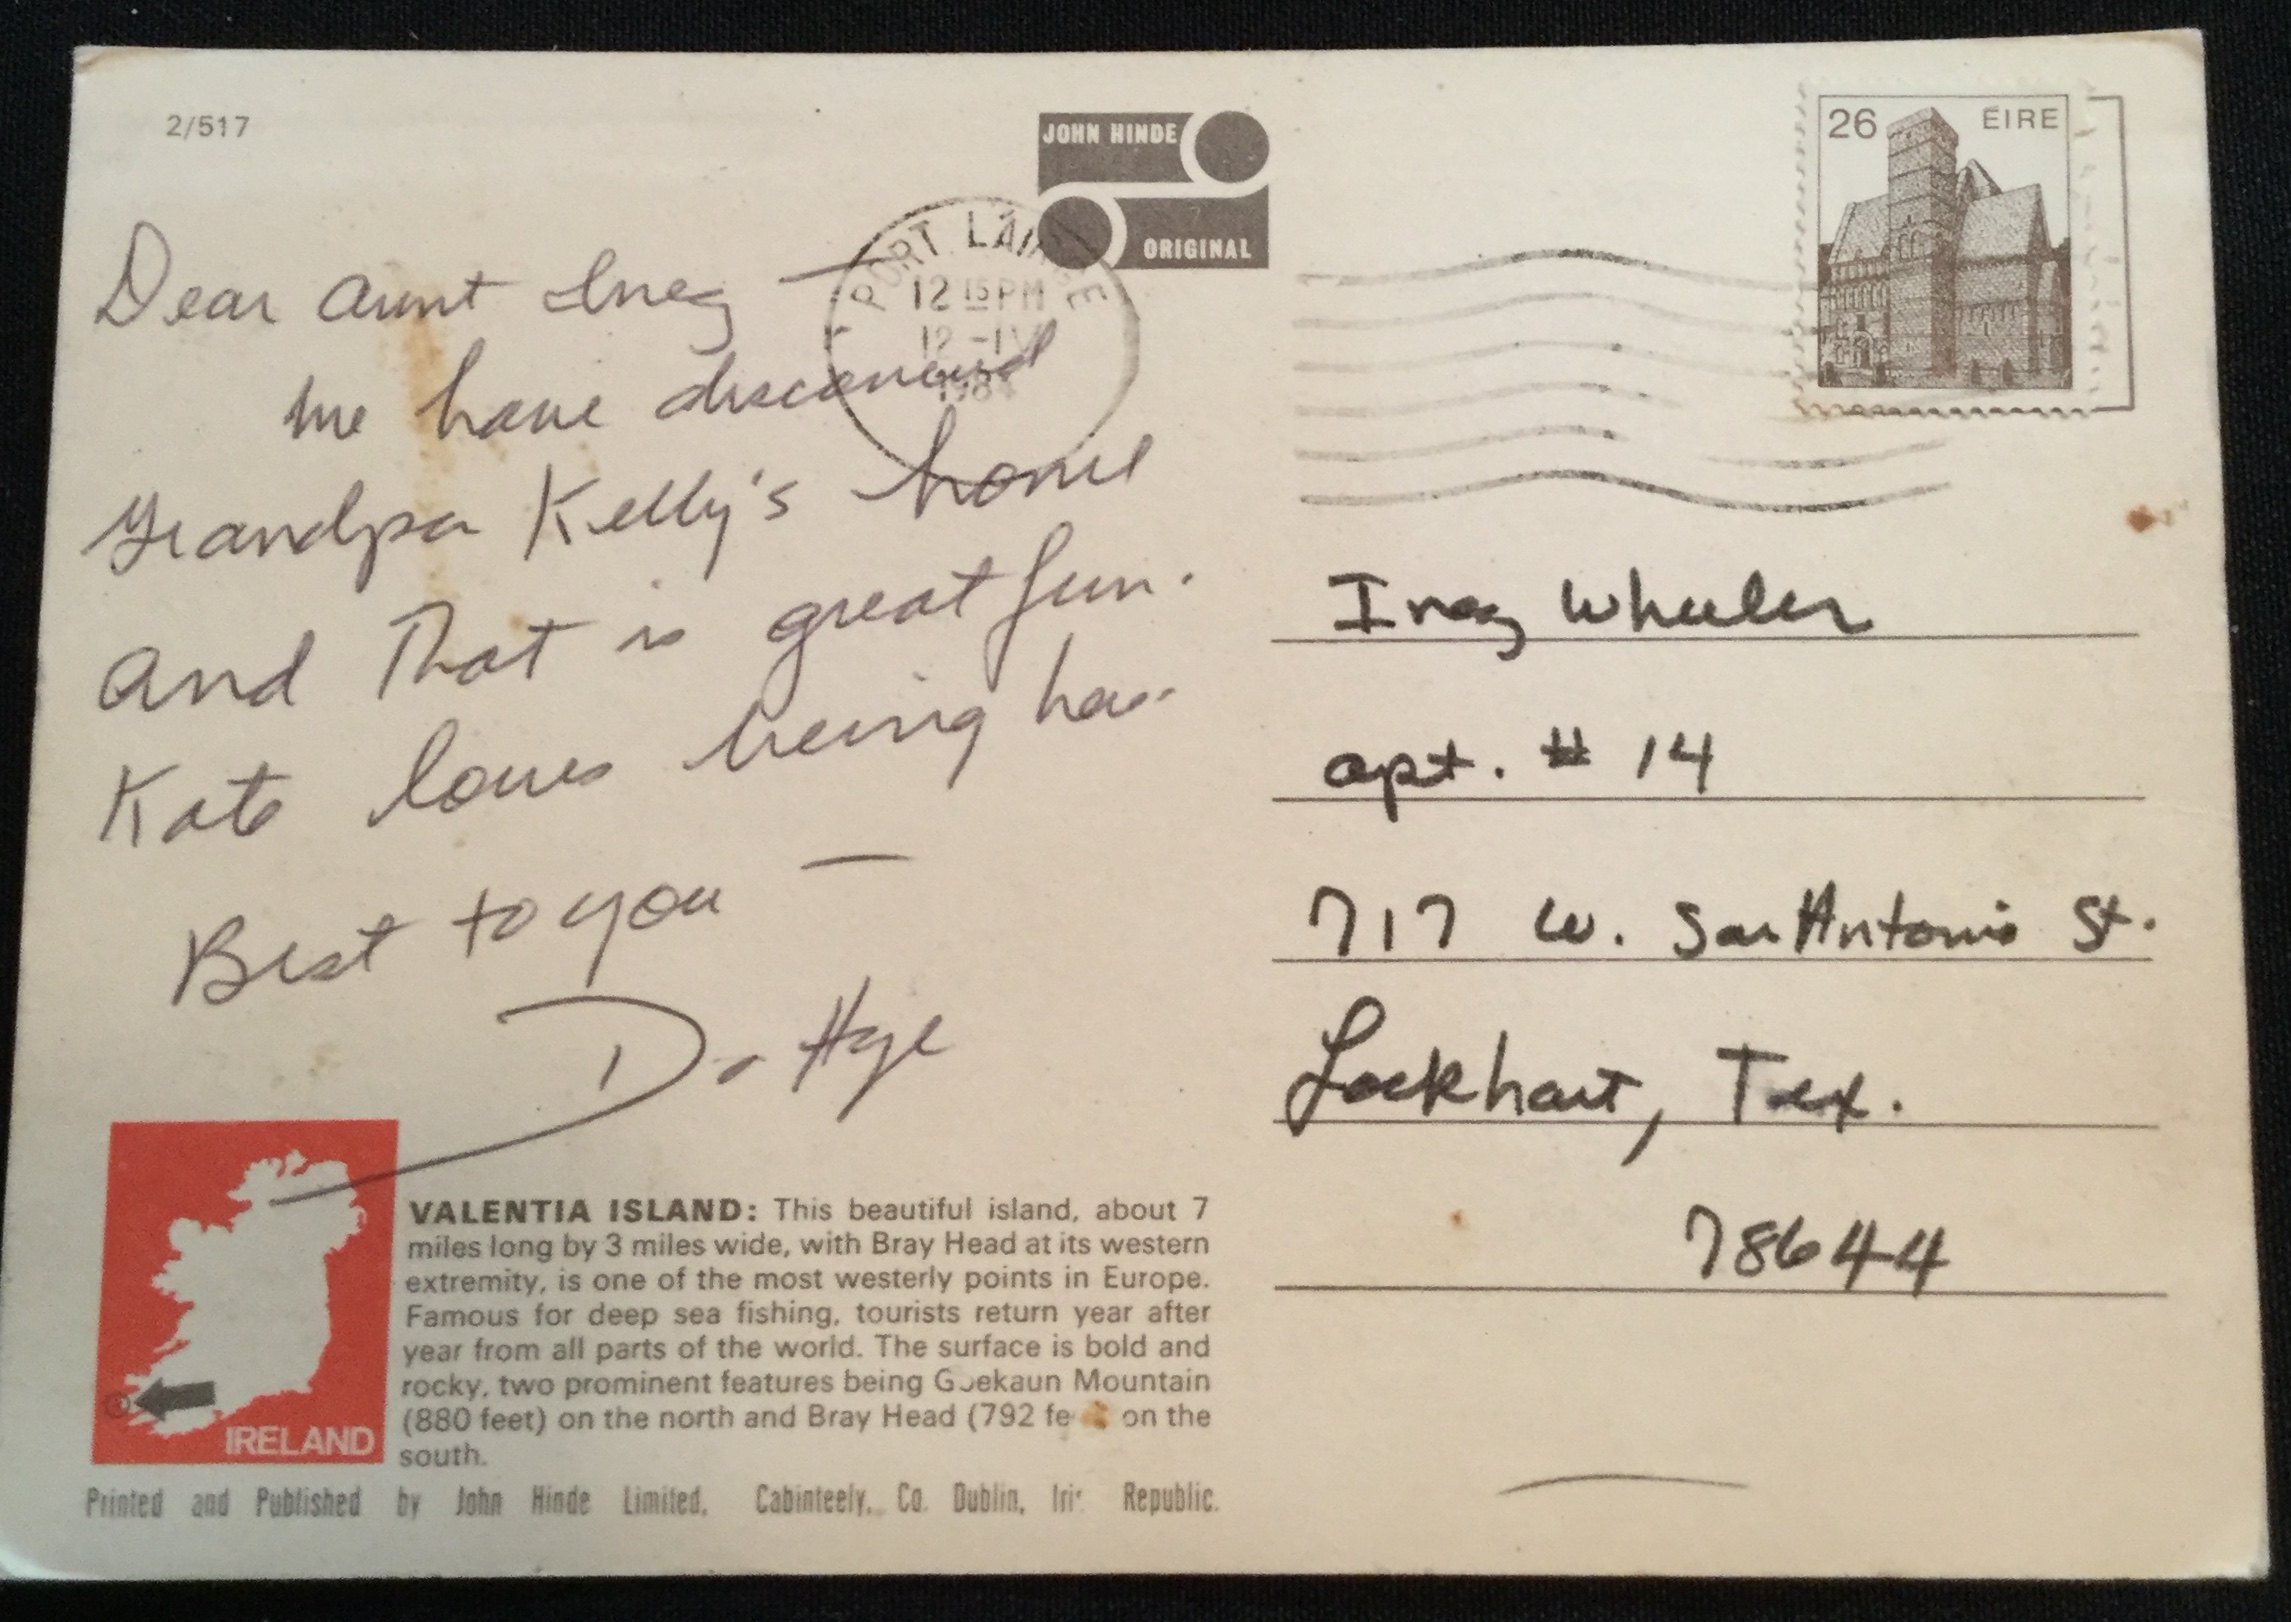 2/517
JOHN HINDE
ORIGINAL
26 ÉIRE
PORT LÁIRGE
12 15 PM
12 -IV
1984
Dear Aunt Inez —
We have discovered
Grandpa Kelly's home
and That is great fun.
Kate loves being here.
Best to you —
Inez Wheeler
apt. # 14
717 W. San Antonio St.
Lockhart, Tex.
78644
IRELAND
VALENTIA ISLAND: This beautiful island, about 7
miles long by 3 miles wide, with Bray Head at its western
extremity, is one of the most westerly points in Europe.
Famous for deep sea fishing, tourists return year after
year from all parts of the world. The surface is bold and
rocky, two prominent features being Geokaun Mountain
(880 feet) on the north and Bray Head (792 feet) on the
south.
Printed and Published by John Hinde Limited, Cabinteely, Co. Dublin, Irish Republic.